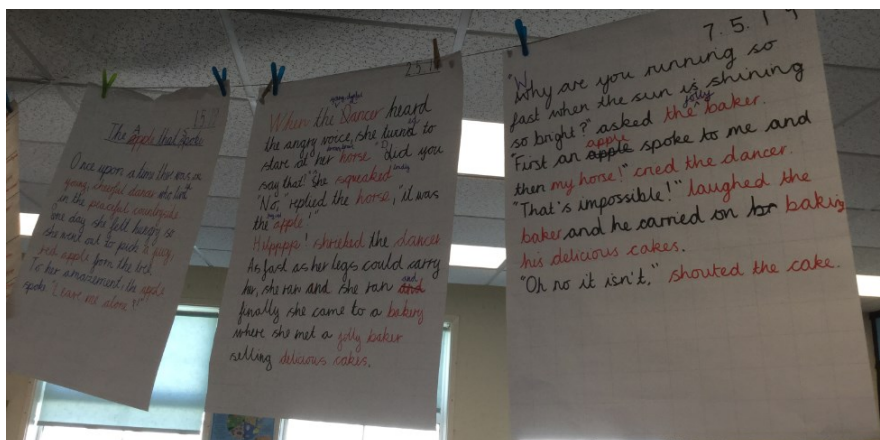 The apple that spoke
Once upon a time there was a
young, cheerful dancer who lived
in the peaceful countryside.
One day she felt hungry so
she went out to pick a juicy,
red apple from the tree.
To her amazement, the apple
spoke "Leave me alone!"
When the Dancer heard
the angry voice, she turned to
stare at her horse "Did you
say that?" she squeaked
"No," replied the horse, "it was
the apple!"
Helpppp! shrieked the dancer
As fast as her legs could carry
her, she ran and she ran and
finally she came to a bakery
where she met a jolly baker
selling delicious cakes.
7.5.19
"Why are you running so
fast when the sun is shining
jolly
so bright?" asked the baker.
apple
"First an apple spoke to me and
then my horse!" cried the dancer.
"That's impossible!" laughed the
baker and he carried on baking
his delicious cakes.
"Oh no it isn't," shouted the cake.